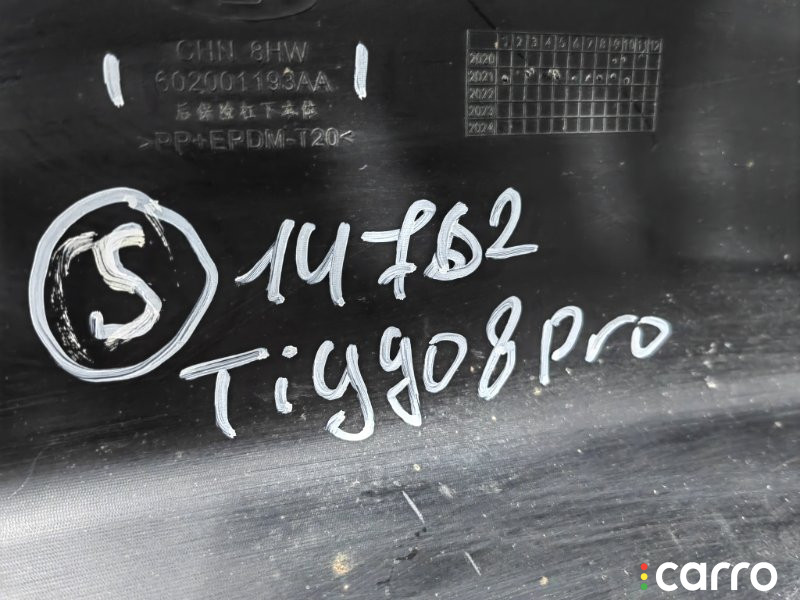 CHN 8HW
602001193AA
后保险杠下本体
>PP+EPDM-T20<
1 2 3 4 5 6 7 8 9 10 11 12
2020
2021
2022
2023
2024
S
14762
Tiggo 8 pro
carro